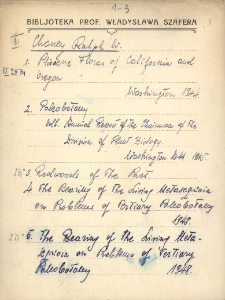 1-3
BIBLJOTEKA PROF. WŁADYSŁAWA SZAFERA
Chaney Ralph W.
1. Pliocene Floras of California and
Oregon
Washington 1944.
2. Paleobotany
Annual Report of the Chairman of the
Division of Plant Biology
Washington
3. Redwoods of the Past
4. The Bearing of the Living Metasequoia
on Problems of Tertiary Paleobotany
1948.
5. The Bearing of the Living Meta-
sequoia on Problems of Tertiary
Paleobotany 1948.